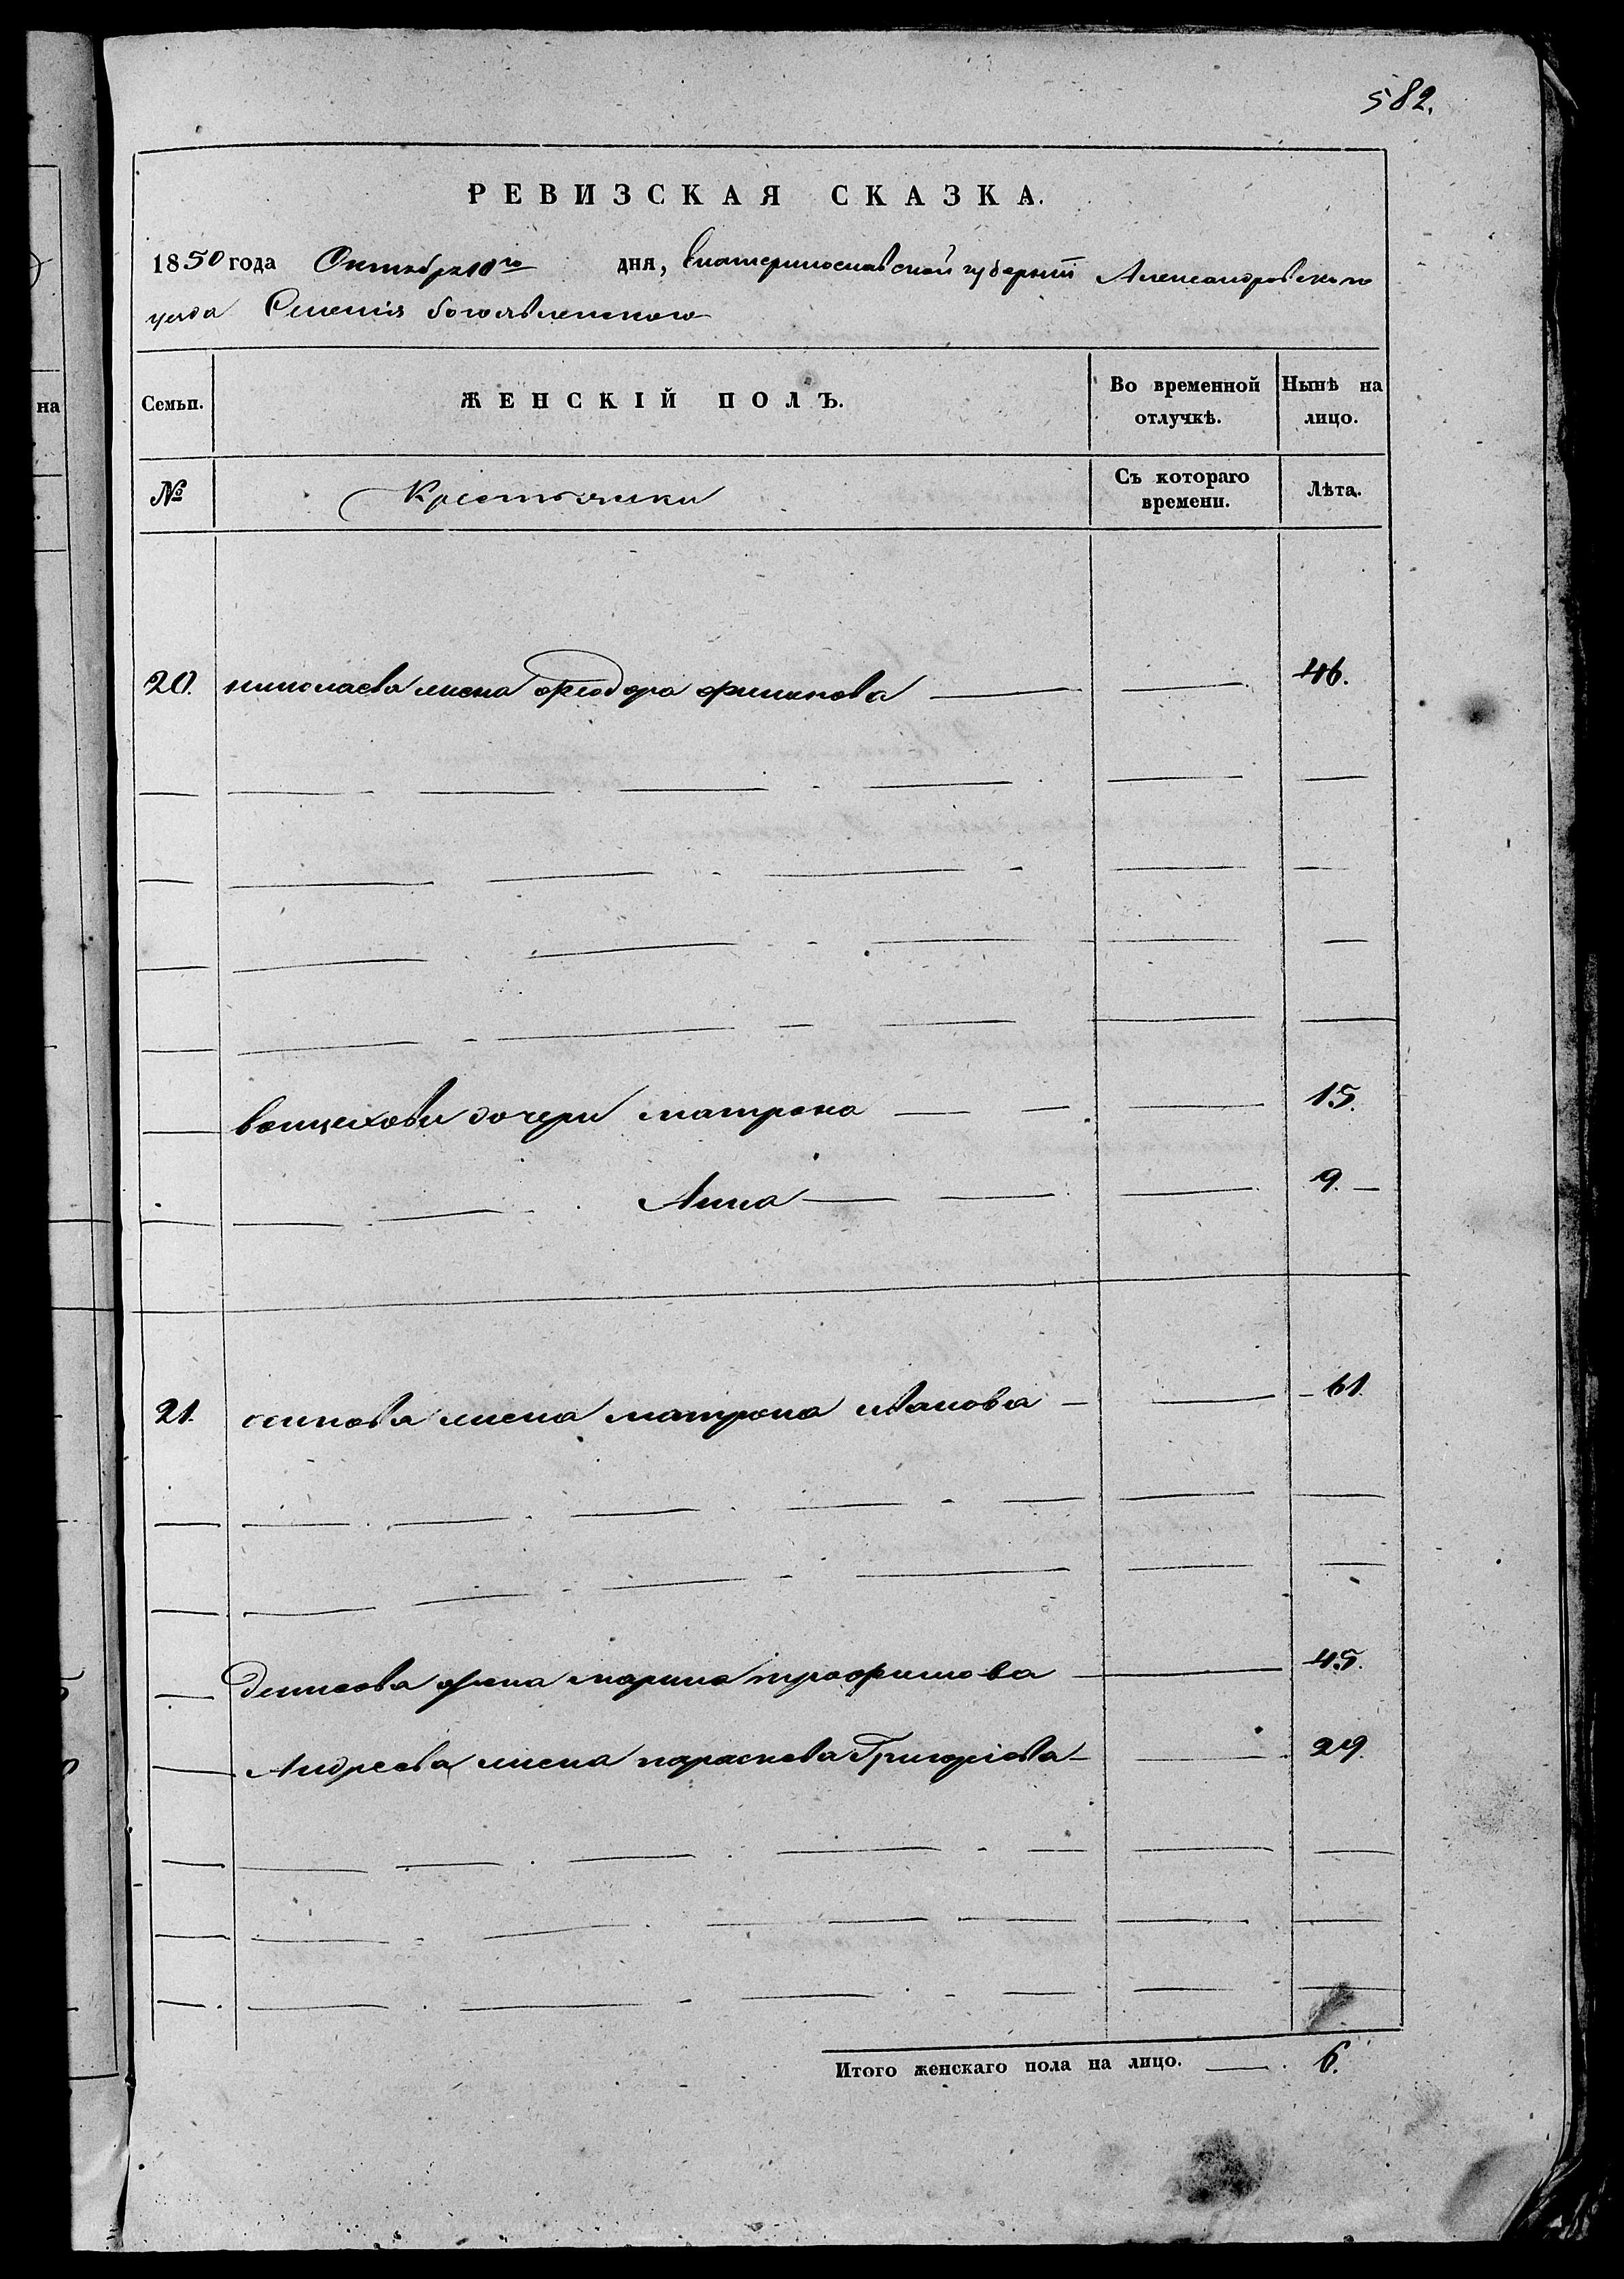 582.
РЕВИЗСКАЯ СКАЗКА.
1850 года Октября 10го дня, Екатеринославской губерніи Александровскаго
уезда Селенія богоявленскаго
Семьи. ЖЕНСКІЙ ПОЛЪ. Во временной отлучкѣ. Нынѣ на лицо.
№ Крестьянки Съ котораго времени. Лѣта.
на
20. николаева жена феодора филипова 46.
дочери матрона 15.
Анна 9.
21. осипова жена матрона иванова 61.
денисова жена марина трофимова 45.
Андреева жена параскева Григорієва 29.
Итого женскаго пола на лицо. 6.